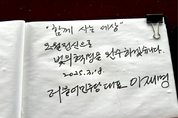 "함께 사는 세상"
오월정신으로
빛의 혁명을 완수하겠습니다.
2025. 5. 18
더불어민주당 대표 이재명